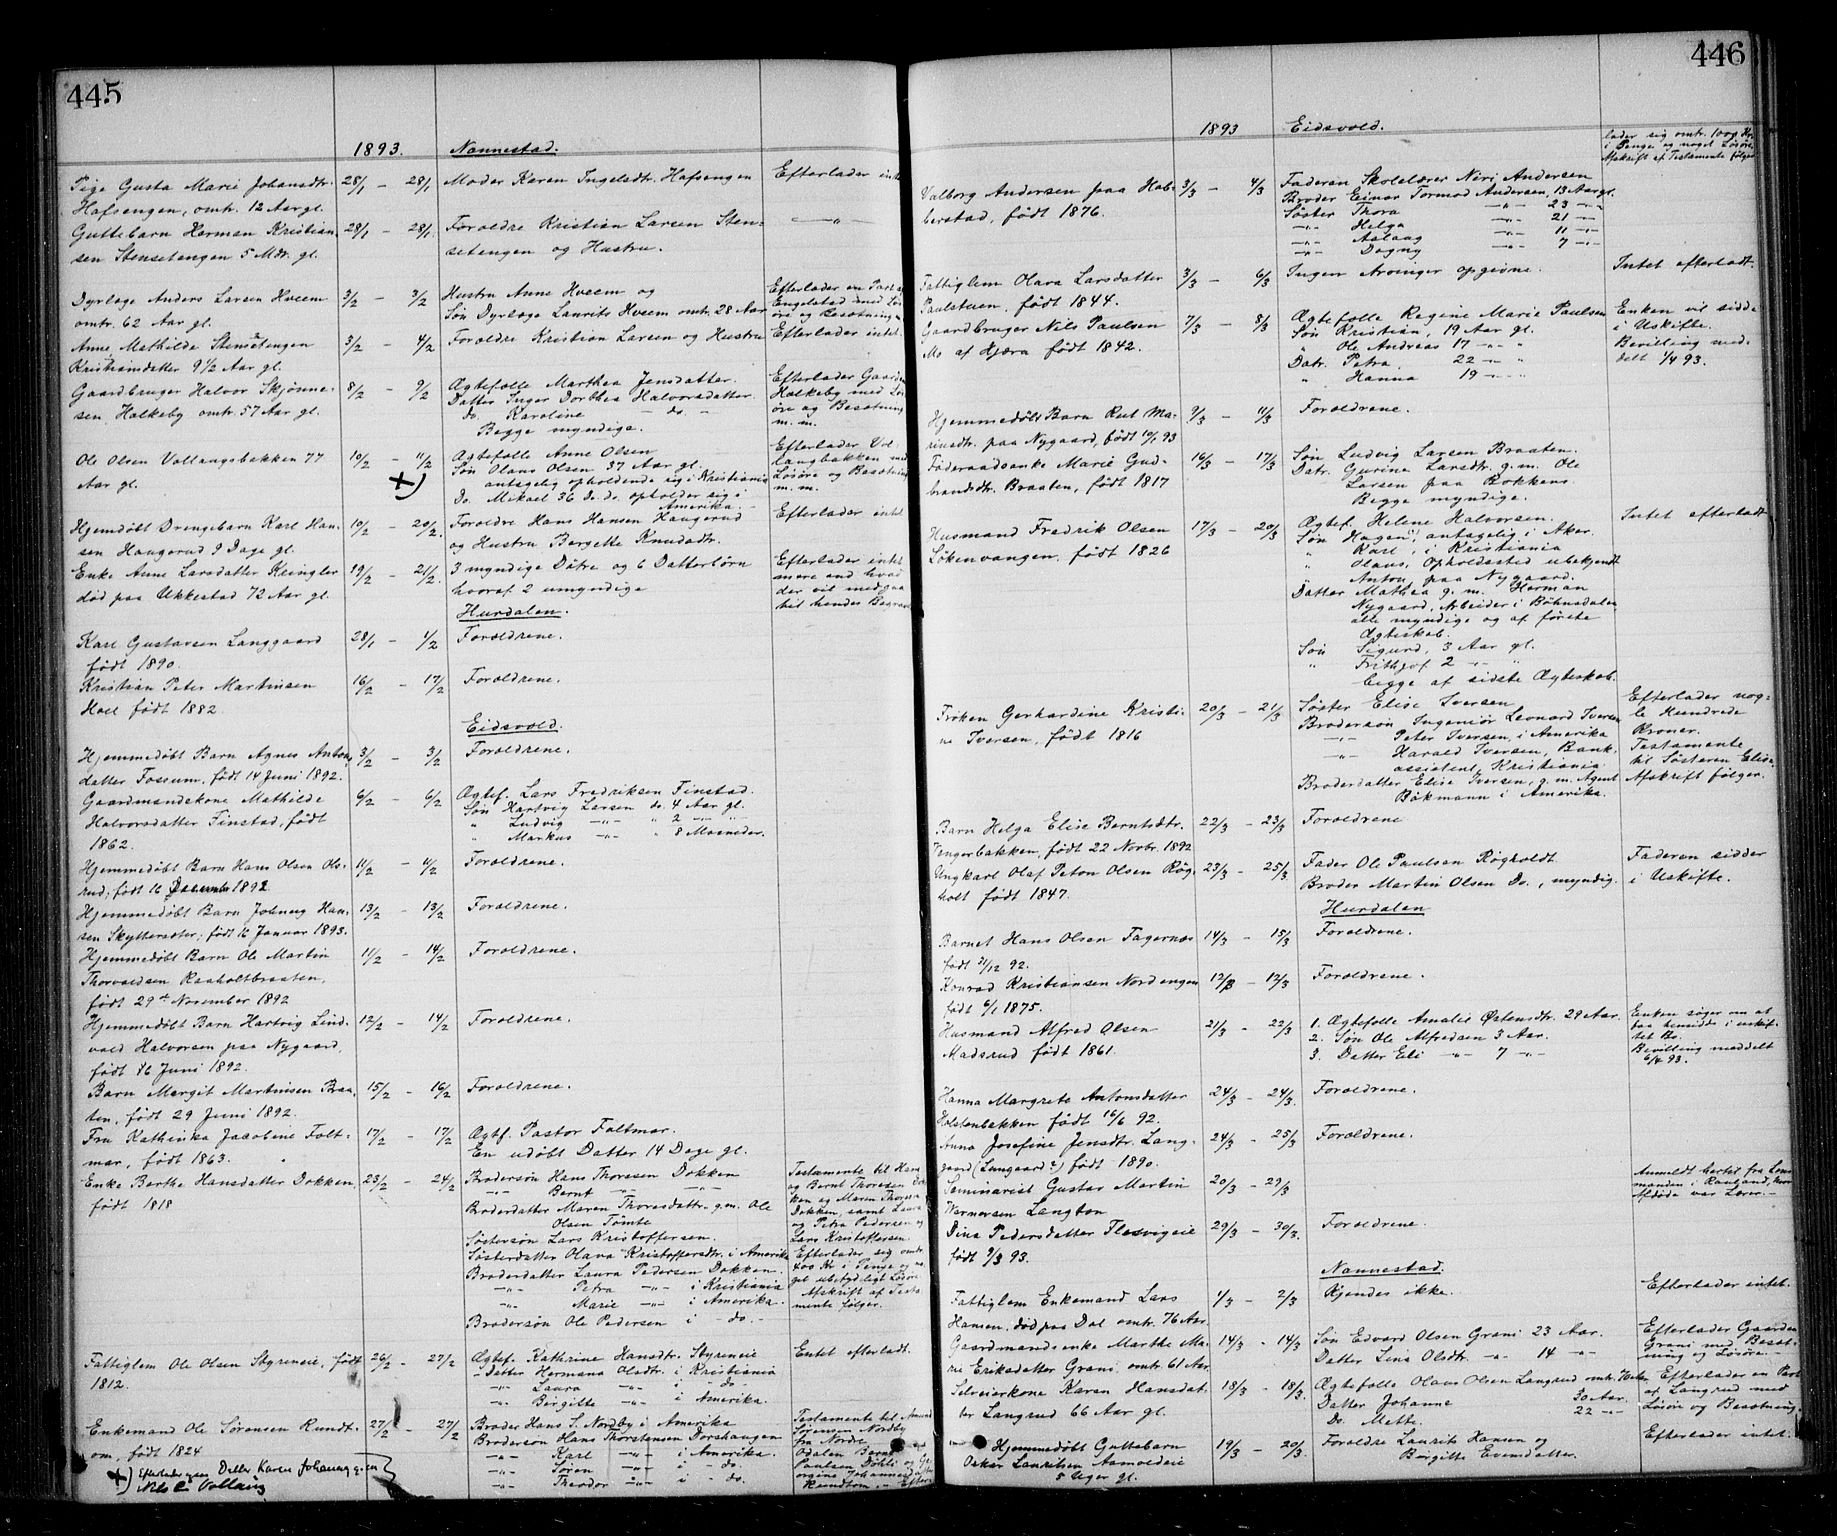 445
1893. Nannestad.
Pige Gusta Marie Johansdtr. 28/1 – 28/1 Moder Karen Ingelsdtr. Hafsengen Efterlader intet
Hafsengen, omtr. 12 Aar gl.
Guttebarn Herman Kristian- 28/1 – 28/1 Forældre Kristian Larsen Sten- —"—
sen Stensetengen 5 Mdr. gl. setengen og Hustru.
Dyrlæge Anders Larsen Hveem 3/2 – 3/2 Hustru Anne Hveem og Efterlader en Part af
omtr. 62 Aar gl. Søn Dyrlæge Laurits Hveem omtr. 28 Aar Engelstad med Løs-
øre og Besætning
Anne Mathilde Stensetengen 3/2 – 4/2 Forældre Kristian Larsen og Hustru Efterlader intet.
Kristiansdatter 9 1/2 Aar gl.
Gaardbruger Halvor Skjønne- 8/2 – 9/2 Ægtefælle Marthea Jensdatter. Efterlader Gaarden
sen Holkeby omtr. 57 Aar gl. Datter Inger Dorthea Halvorsdatter. Holkeby med Løs-
do. Karoline – do. – øre og Besætning
Begge myndige. m. m.
Ole Olsen Vollaugsbakken 77 10/2 – 11/2 Ægtefælle Anne Olsen Efterlader Vol-
Aar gl. +) Søn Olaus Olsen 37 Aar gl. laugbakken med
antagelig opholdende sig i Kristiania Løsøre og Besætning
Do. Mikael 36 do. do. opholder sig i m. m.
Amerika.
Hjemdøbt Drengebarn Karl Han- 10/2 – 20/2. Forældre Hans Hansen Haugerud Efterlader intet
sen Haugerud 9 Dage gl. og Hustru Bergette Knudsdtr.
Enke Anne Larsdatter Kringler 19/2 – 21/2. 3 myndige Døtre og 6 Datterbørn Efterlader intet
død paa Ukkestad 72 Aar gl. hvoraf 2 umyndige mere end hvad
der vil medgaa
til hendes Begrav
Hurdalen.
Karl Gustavsen Langgaard 28/1 – 1/2 Forældrene.
født 1890.
Kristian Peter Martinsen 16/2 – 17/2 Forældrene.
Hoel født 1882.
Eidsvold.
Hjemmedøbt Barn Agnes Anton- 3/2 – 3/2 Forældrene.
datter Fossum, født 14 Juni 1892.
Gaardmandskone Mathilde 6/2 – 6/2 Ægtef. Lars Fredriksen Finstad.
Halvorsdatter Finstad, født Søn Hartvig Larsen do. 4 Aar gl.
1862. " Ludvig —"— " 2 —"— "
" Markus —"— " 8 Maaneder.
Hjemmedøbt Barn Hans Olsen Ols- 11/2 – 11/2 Forældrene.
rud, født 16 Decembr 1892
Hjemmedøbt Barn Johnny Han- 13/2 – 13/2 Forældrene.
sen Skytterseter, født 16 Januar 1893.
Hjemmedøbt Barn Ole Martin 11/2 – 14/2 Forældrene.
Thorvaldsen Raaholtbraaten,
født 29de November 1892
Hjemmedøbt Barn Hartvig Lind- 12/2 – 14/2 Forældrene.
vald Halvorsen paa Nygaard,
født 16 Juni 1892.
Barn Margit Martinsen Braa- 15/2 – 16/2 Forældrene.
ten, født 29 Juni 1892.
Fru Kathinka Jacobine Falt- 17/2 – 17/2 Ægtf. Pastor Faltmar.
mar, født 1863. En udøbt Datter 14 Dage gl.
Enke Berthe Hansdatter Dokken 23/2 – 24/2 Brodersøn Hans Thoresen Dokken Testamente til Hans
født 1818 —"— Bernt —"— —"— og Bernt Thoresen Dok-
Broderdatter Maren Thoresdatter g.m. Ole ken og Maren Thoresd.
Olsen Tømte Dokken, samt Laura
Søstersøn Lars Kristoffersen. og Petra Pedersen og
Lars Kristoffersen.
Søsterdatter Olava Kristoffersdtr. i Amerika Efterlader sig omtr.
Broderdatter Laura Pedersen Dokken. 400 Kr. i Penge og no-
—"— Petra —"— i Kristiania get ubetydeligt Løsøre
—"— Marie —"— i Amerika. Afskrift af Testa-
Brodersøn Ole Pedersen i – do. – mente følger.
Fattiglem Ole Olsen Styreneie, født 26/2 – 27/2 Ægtef. Kathrine Hansdtr. Styreneie Entet efterladt.
1812. – Datter Hermana Olsdtr. i Kristiania
—"— Laura —"— i – do.
—"— Birgitte —"— i Amerika.
Enkemand Ole Sørensen Rundt- 27/2 – 27/2 Broder Hans S. Nordby i Amerika Testamente til
om, født 1824 Brodersøn Hans Thorstensen Dorshaugen Sørensen Nordby
—"— Karl —"— i Amerika.
—"— Søren —"— i – do.
—"— Theodor —"— i – do. Rundtom. – Efterl
+) Efterlader ogsaa Datter Karen Johanne g. m.
Nils E. Vollaug
446
1893 Eidsvold.
lader sig omtr. 1000 Kr.
i Penge og noget Løsøre.
Afskrift af Testamente følger
Valborg Andersen paa Hab- 3/3 – 4/3 Faderen Skolelærer Niri Andersen
berstad, født 1876. Broder Einar Tormod Andersen, 13 Aar gl.
Søster Thora —"— 23 —"—
—"— Helga —"— 21 —"—
—"— Aslaug —"— 11 —"—
—"— Dagny —"— 7 —"—
Fattiglem Olava Larsdatter 3/3 – 6/3 Ingen Arvinger opgivne. Intet efterladt.
Paulstuen, født 1844.
Gaardbruger Nils Paulsen 7/3 – 8/3 Ægtefælle Regine Marie Paulsen Enken vil sidde
Mo af Hjæra født 1842. Søn Kristian, 19 Aar gl. i Uskifte.
" Ole Andreas 17 —"— " Bevilling med-
Datr. Petra 22 —"— " delt 1/4 93.
" Hanna 19 —"— "
Hjemmedøbt Barn Rut Ma- 9/3 – 11/3 Forældrene.
rinsdtr. paa Nygaard, født 10/1 93
Føderaadsenke Marie Gud- 16/3 – 17/3 Søn Ludvig Larsen Braaten.
brandsdtr. Braaten, født 1817 Datr. Gurine Larsdtr. g.m. Ole
Larsen paa Rokkens
Begge myndige.
Husmand Fredrik Olsen 17/3 – 20/3 Ægtef. Helene Halvorsen. Intet efterladt
Løkenvangen, født 1826 Søn Hagen, antagelig i Aker.
" Karl, i Kristiania
" Olaus, Opholdssted ubekjendt
" Anton, paa Nygaard.
Datter Mathea g.m. Herman
Nygaard, Arbeider i Bøhnsdalen
alle myndige og af første
Ægteskab.
Søn Sigurd, 3 Aar gl.
" Frithjof 2 —"— "
begge af sidste Ægteskab.
Frøken Gerhardine Kristi- 20/3 – 21/3 Søster Elise Iversen Efterlader nog-
ne Iversen, født 1816 Brodersøn Ingeniør Leonard Iversen le Hundrede
—"— Peter Iversen, i Amerika Kroner.
—"— Harald Iversen, Bank- Testamente
assistent, Kristiania til Søsteren Elise
Broderdatter Elise Iversen, g.m. Agent Afskrift følger.
Bøkmann i Amerika.
Barn Helga Elise Berntsdtr. 22/3 – 23/3 Forældrene
Vengerbakken, født 22 Novbr. 1892
Ungkarl Olaf Peton Olsen Røg- 23/3 – 25/3 Fader Ole Paulsen Røgholdt. Faderen sidder
holt født 1847. Broder Martin Olsen Do., myndig. i Uskifte.
Hurdalen
Barnet Hans Olsen Fagernæs 14/3 – 15/3 Forældrene.
født 31/12 92.
Konrad Kristiansen Nordengen 12/3 – 12/3 Forældrene.
født 6/1 1875.
Husmand Alfred Olsen 21/3 – 22/3 1. Ægtefælle Amalie Østensdtr. 29 Aar. Enken søger om at
Madsrud født 1861. 2. Søn Ole Alfredsen 3 Aar. faa hensidde i uskif-
3. Datter Eli —"— 7 —"— tet Bo.
Bevilling meddelt
6/4 93.
Hanna Margrete Antonsdatter 24/3 – 24/3. Forældrene.
Holstenbakken født 16/6 92.
Anna Josefine Jensdtr. Lang- 24/3 – 25/3 Forældrene.
gaard (Lungaard?) født 1890.
Seminarist Gustav Martin 20/3 – 29/3 Anmeldt hertil fra Lens-
Wernersen Langton manden i Rauland, hvor
Afdøde var Lærer. –
Dina Pedersdatter Flesvigeie 29/3 – 30/3. Forældrene.
født 9/3 93.
Nannestad.
Fattiglem Enkemand Lars 1/3 – 2/3 Kjendes ikke. Efterlader intet.
Hansen, død paa Dal omtr. 76 Aar.
Gaardmandsenke Marthe Ma- 14/3 – 14/3 Søn Edvard Olsen Grani 23 Aar. Efterlader Gaarden
rie Eriksdatter Grani omtr. 61 Aar. Datter Lina Olsdtr. —"— 14 —"— Grani med Besæt-
ning og Løsøre. –
Selveierkone Karen Hansdat- 18/3 – 18/3. Ægtefælle Olaus Olsen Langrud omtr. Efterlader en Part
ter Langrud 66 Aar gl. Datter Johanne 30 Aar. af Langrud med
Do. Mette. 22 —"— Løsøre og Besætning.
Hjemmedøbt Guttebarn 19/3 – 20/3. Forældre Laurits Hansen og Efterlader intet.
Oskar Lauritsen Aamodteie Birgitte Evensdatter.
5 Uger gl.